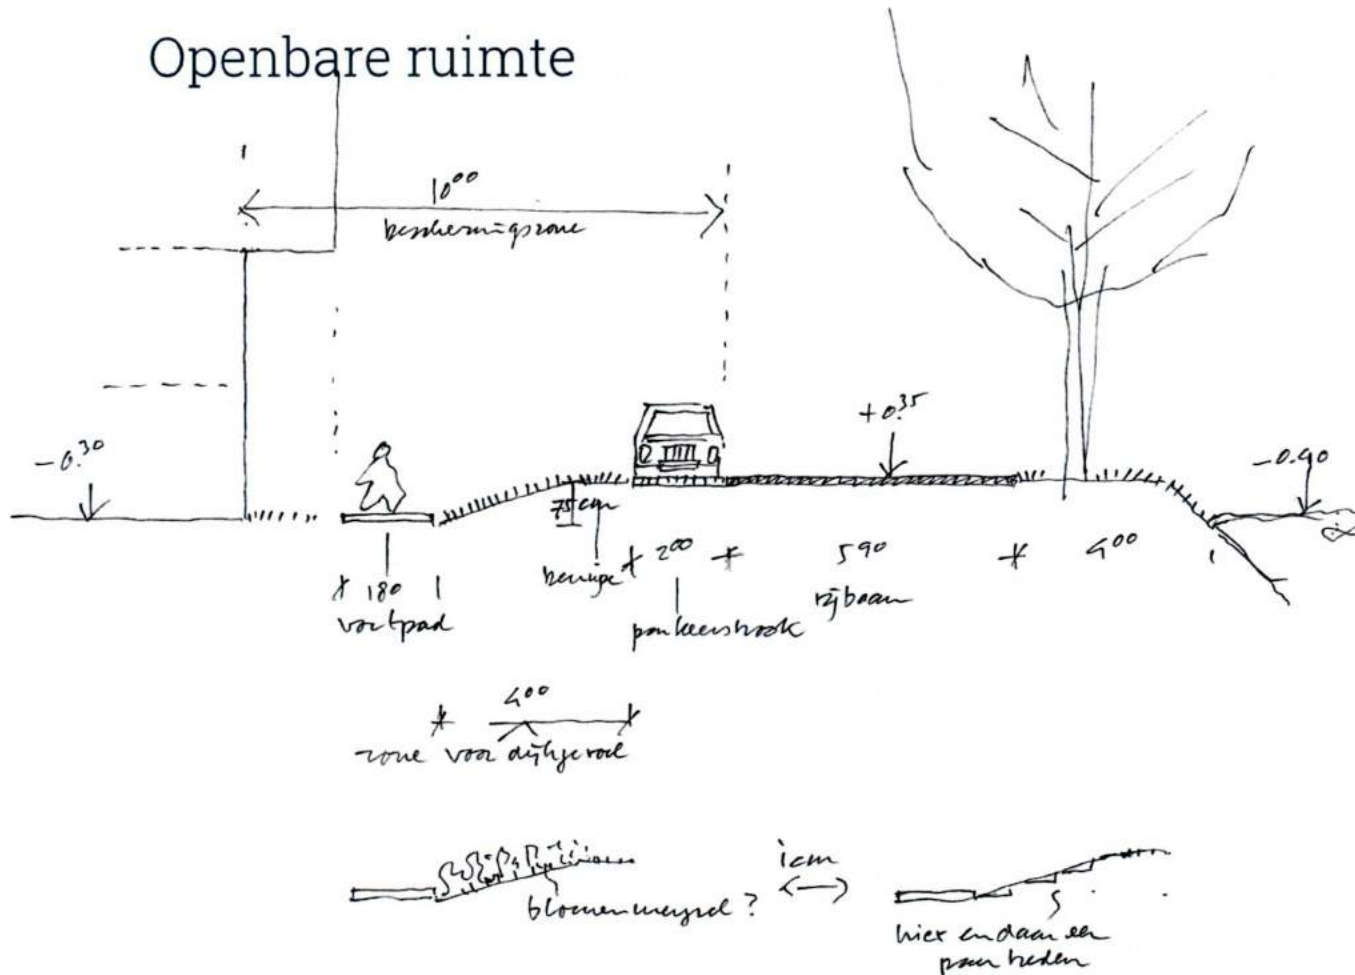 Openbare ruimte
10⁰⁰
beschermingszone
-0.30
+0.35
-0.40
75 cm
180
voetpad
berm
2⁰⁰
parkeerstrook
5⁹⁰
rijbaan
4⁰⁰
4⁰⁰
zone voor dijkgevoel
bloemenmengsel?
icm
hier en daar een
paar treden